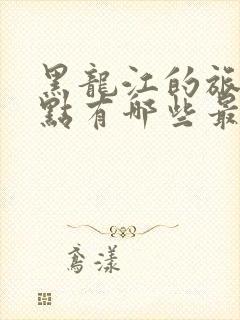 黑龍江的旅
點有哪些最
鴦漾